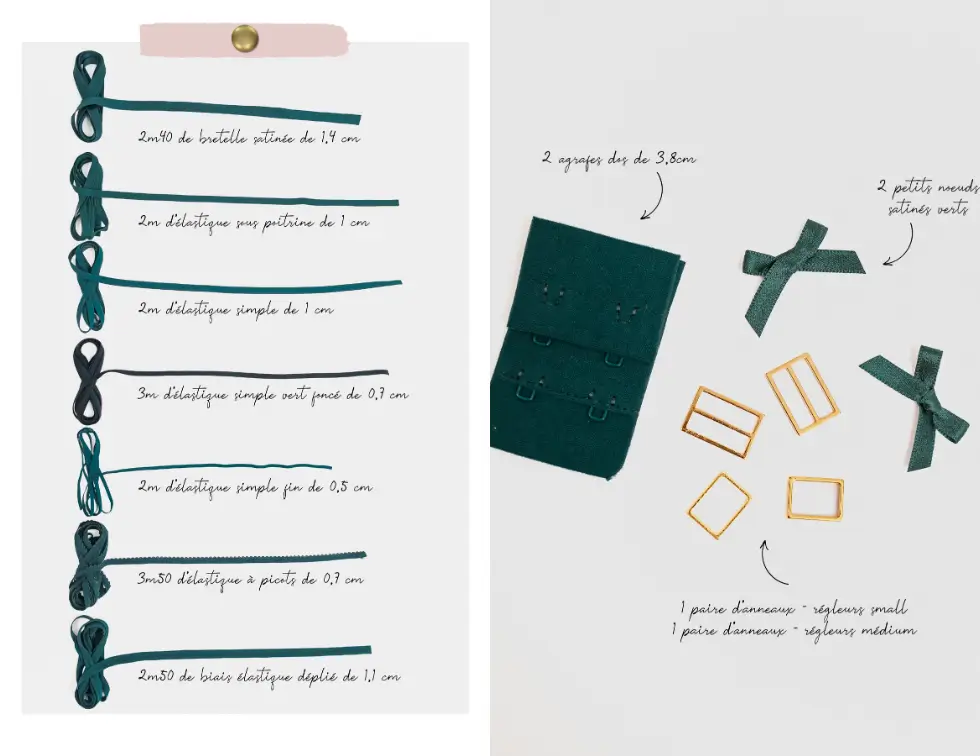 2m40 de bretelle satinée de 1.4 cm
2m d'élastique sous poitrine de 1 cm
2m d'élastique simple de 1 cm
3m d'élastique simple vert foncé de 0.7 cm
2m d'élastique simple fin de 0.5 cm
3m50 d'élastique à picots de 0.7 cm
2m50 de biais élastique déplié de 1.1 cm
2 agrafes dos de 3.8cm
2 petits noeuds
satinés verts
1 paire d'anneaux - régleurs small
1 paire d'anneaux - régleurs médium